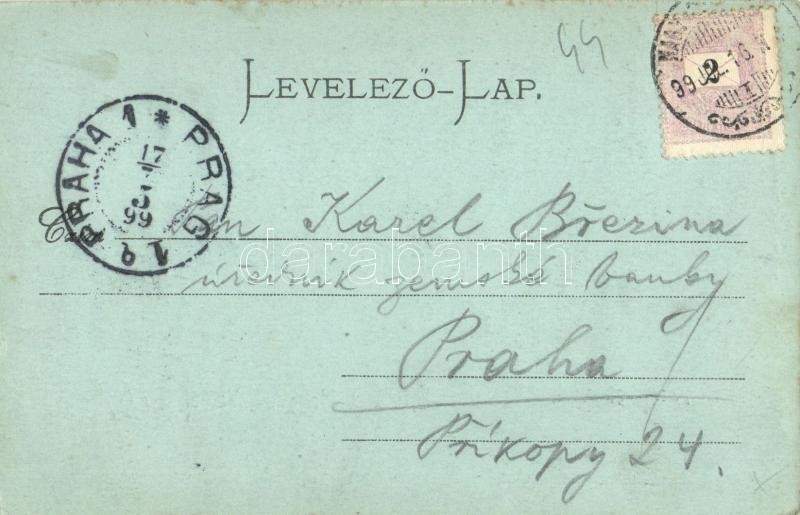 44
LEVELEZŐ-LAP.
2
99 JUL. 16.
PRAHA 1 * PRAG 1
Pan Karel Březina
úředník zemské banky
Praha
Příkopy 24.
darabanth